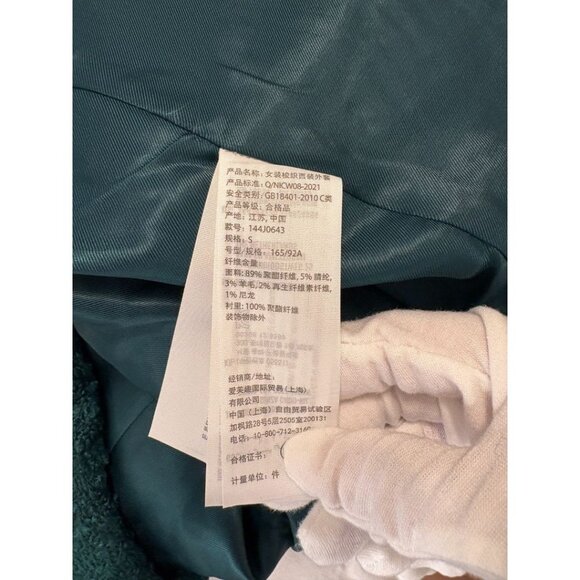 产品名称: 女装梭织西装外套
产品标准: Q/NICW08-2021
安全类别: GB18401-2010 C类
产品等级: 合格品
产地: 江苏, 中国
款号: 144J0643
规格: S
号型/规格: 165/92A
纤维含量
面料: 89% 聚酯纤维, 5% 腈纶,
3% 羊毛, 2% 再生纤维素纤维,
1% 尼龙
衬里: 100% 聚酯纤维
装饰物除外
经销商/地址:
爱芙趣国际贸易 (上海)
有限公司
中国 (上海) 自由贸易试验区
加枫路28号5层2505室200131
电话: 10-800-712-3140
合格证书:
计量单位: 件